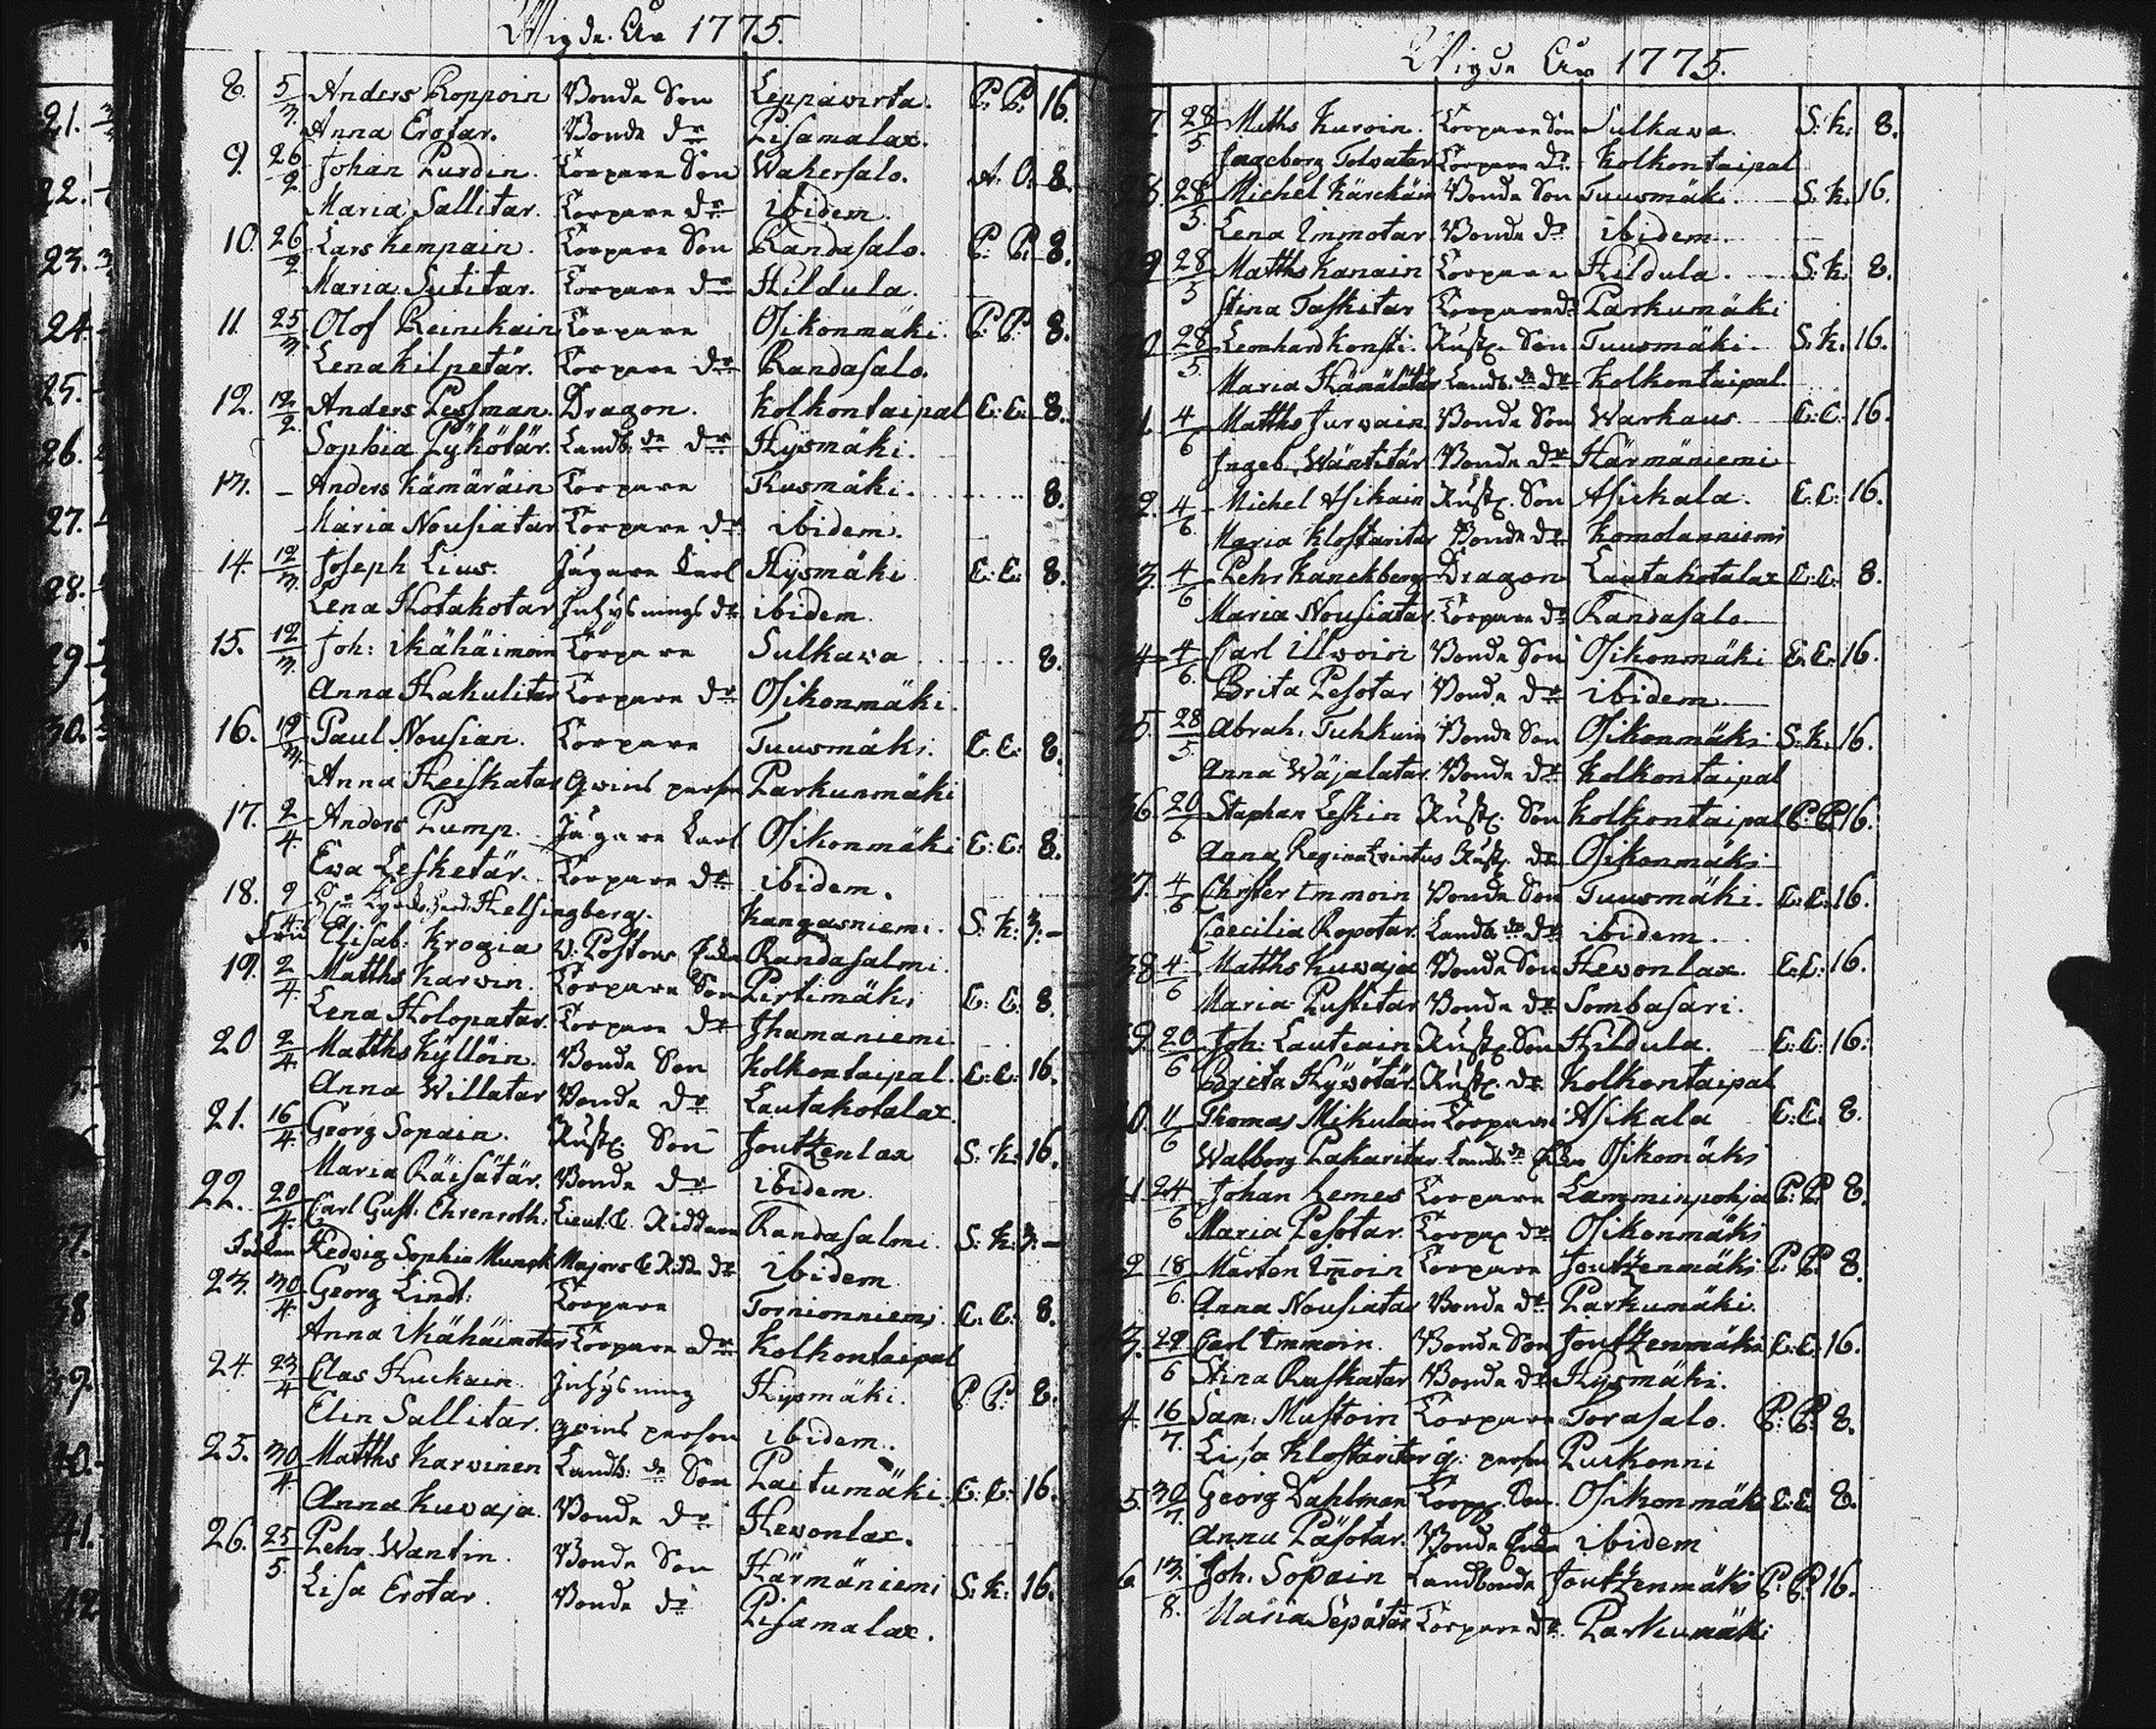 Wigde År 1775.
8. 5/3. Anders Roppoin Bonde Son Leppäwirta. P: P: 16.
Anna Erotar. Bonde dr Pisamalax.
9. 26/2 Johan Purdin. Torpare Son Wakersalo. A: O: 8.
Maria Sallitar. Torpare dr ibidem.
10. 26/2 Lars Kempain. Torpare Son Randasalo. P: P: 8.
Maria Sutitar. Torpare dr Hildula.
11. 25/3. Olof Reinikain Torpare Osikonmäki. P: P: 8.
Lena Kilpetär. Torpare dr Randasalo.
12. 12/2. Anders Pessman. Dragon. Kolkontaipal C: C: 8.
Sophia Pyhötär. Landb. de dr Hysmäki.
13. – Anders Kämäräin Torpare Rusmäki. 8.
Maria Nousiatar Torpare dr ibidem.
14. 12/3. Joseph Lius. Jägare Karl Hysmäki C: C: 8.
Lena Hotakotar Inhysnings dr ibidem.
15. 12/3. Joh: Mähäimoin Torpare Sulkawa 8.
Anna Hakulitar Torpare dr Osikonmäki.
16. 12/3. Paul Nousian. Torpare Tuusmäki. C: C: 8.
Anna Heiskatar Qwins person Parkunmäki
17. 2/4. Anders Pump. Jägare Karl Osikonmäki C: C: 8.
Ewa Lesketär. Torpare dr ibidem.
18. 2/4 Helsingberg. Kangasniemi. S: K: 3.–
Fru Elisab: Krogia v: Pastors Enka Randasalmi.
19. 2/4. Matths Karvin. Torpare Son Pirtimäki C: C: 8.
Lena Holopatar. Torpare dr Ihamaniemi
20 2/4. Matths Kyllöin. Bonde Son Kolkontaipal. C: C: 16.
Anna Willatar Bonde dr Lautakotalax.
21. 16/4. Georg Sopain. Rust. Son Joutzenlax S: K: 16.
Maria Räisätär. Bonde dr ibidem.
22. 20/4. Carl Gust: Ehrenroth. Lieut: & Riddare Randasalmi. S: K: 3.–
Fröken Hedvig Sophia Munck Majors & Ridd. dr ibidem
23. 30/4. Georg Lindt: Torpare Tornionniemi. C: C: 8.
Anna Mähäimotar Torpare dr Kolkontaipal
24. 23/4 Clas Huckain. Inhysning Hysmäki. P: P: 8.
Elin Sallitar. qwins person ibidem.
25. 30/4. Matths Karvinen Landb: de Son Paitumäki. C: C: 16.
Anna Kuvaja. Bonde dr Hevonlax.
26. 25/5. Pehr Wantin. Bonde Son Härmäniemi S: K: 16.
Lisa Erotar. Bonde dr Pisamalax.
Wigde År 1775.
7. 28/5 Matths Kuroin. Torpare Son Sulkawa. S: K: 8.
Ingeborg Tolvatar Torpare dr. Kolkontaipal
28. 28/5. Michel Kärckäin Bonde Son Tuusmäki. S: K: 16.
Lena Immotar. Bonde dr ibidem
29 28/5 Matths Kanain Torpare Hildula. S: K: 8.
Stina Taskitar Torpare dr Parkumäki
28/5. Leonhard Konsti. Rust. Son Tuusmäki. S: K: 16.
Maria Hämälätär Landb. de dr Kolkontaipal.
1. 4/6 Matths Jurvain Bonde Son Warkaus. C: C: 16.
Ingeb. Wäntitär Bonde dr Härmäniemi
2. 4/6 Michel Asikain Rust. Son Asickala. C: C: 16.
Maria Klostaritar Bonde dr Komolanniemi
3. 4/6 Pehr Kanckberg Dragon Lautakotalax C: C: 8.
Maria Nousiatar. Torpare dr Randasalo
4 4/6. Carl Illvoin Bonde Son Osikonmäki C: C: 16.
Brita Pesotar Bonde dr ibidem
5. 28/5. Abrah. Tuhkuin Bonde Son Osikonmäki S: K: 16.
Anna Wäjalatar. Bonde dr Kolkontaipal
36. 20/6 Staphan Leskin Rust. Son Kolkontaipal P: P: 16.
Anna Regina Rust. dr Osikonmäki
7. 4/6 Christer Immoin Bonde Son Tuusmäki. C: C: 16.
Caecilia Ropotar. Landb. de dr ibidem.
38 4/6 Matths Kuvaja Bonde Son Hevonlax. C: C: 16.
Maria Puttitar Bonde dr Sombasari.
9. 20/6 Joh: Lautiain Rust. Son Hildula. C: C: 16.
Brita Hyvötär. Rust. dr Kolkontaipal
0. 11/6 Thomas Mikulain Torpare Asikala C: C: 8.
Walborg Pakaritar Landb. de Enka Osikomäki
1. 24/6 Johan Lemes Torpare Lamminpohja P: P: 8.
Maria Pesotar. Torpar dr Osikonmäki
2 18/6. Mårten Immoin Torpare Joutzenmäki P: P: 8.
Anna Nousiatar Bonde dr Parkumäki
3. 29/6 Carl Immoin. Bonde Son Joutzenmäki C: C: 16.
Stina Ruskatar Bonde dr Hysmäki.
4. 16/7. Sam: Mustoin Torpare Torasalo. P: P: 8.
Lisa Klostaritar q: person Purkonni
5. 30/7. Georg Dahlman Torpar Son. Osikonmäki C: C: 8.
Anna Päsotar. Bonde Enka ibidem
6. 13/8. Joh. Sopain Landbonde Joutzenmäki P: P: 16.
Maria Sepätär Torpare dr. Parkumäki
21.
22.
23.
24.
25.
26.
27.
28.
29
30.